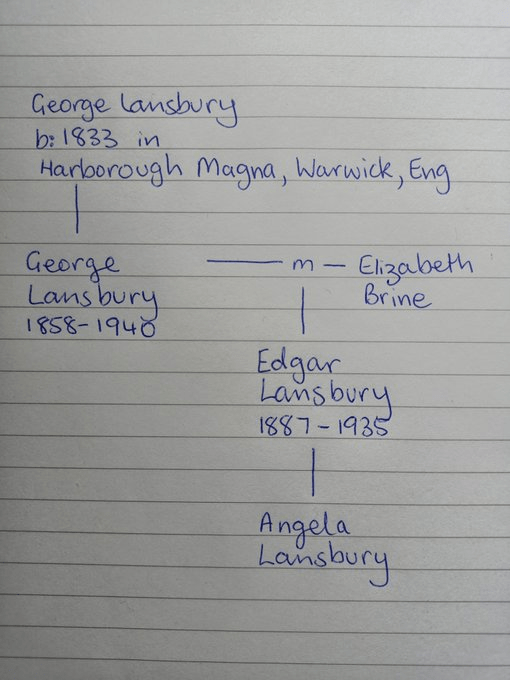 George Lansbury
b: 1833 in
Harborough Magna, Warwick, Eng
George
Lansbury
1858-1940
m
Elizabeth
Brine
Edgar
Lansbury
1887-1935
Angela
Lansbury